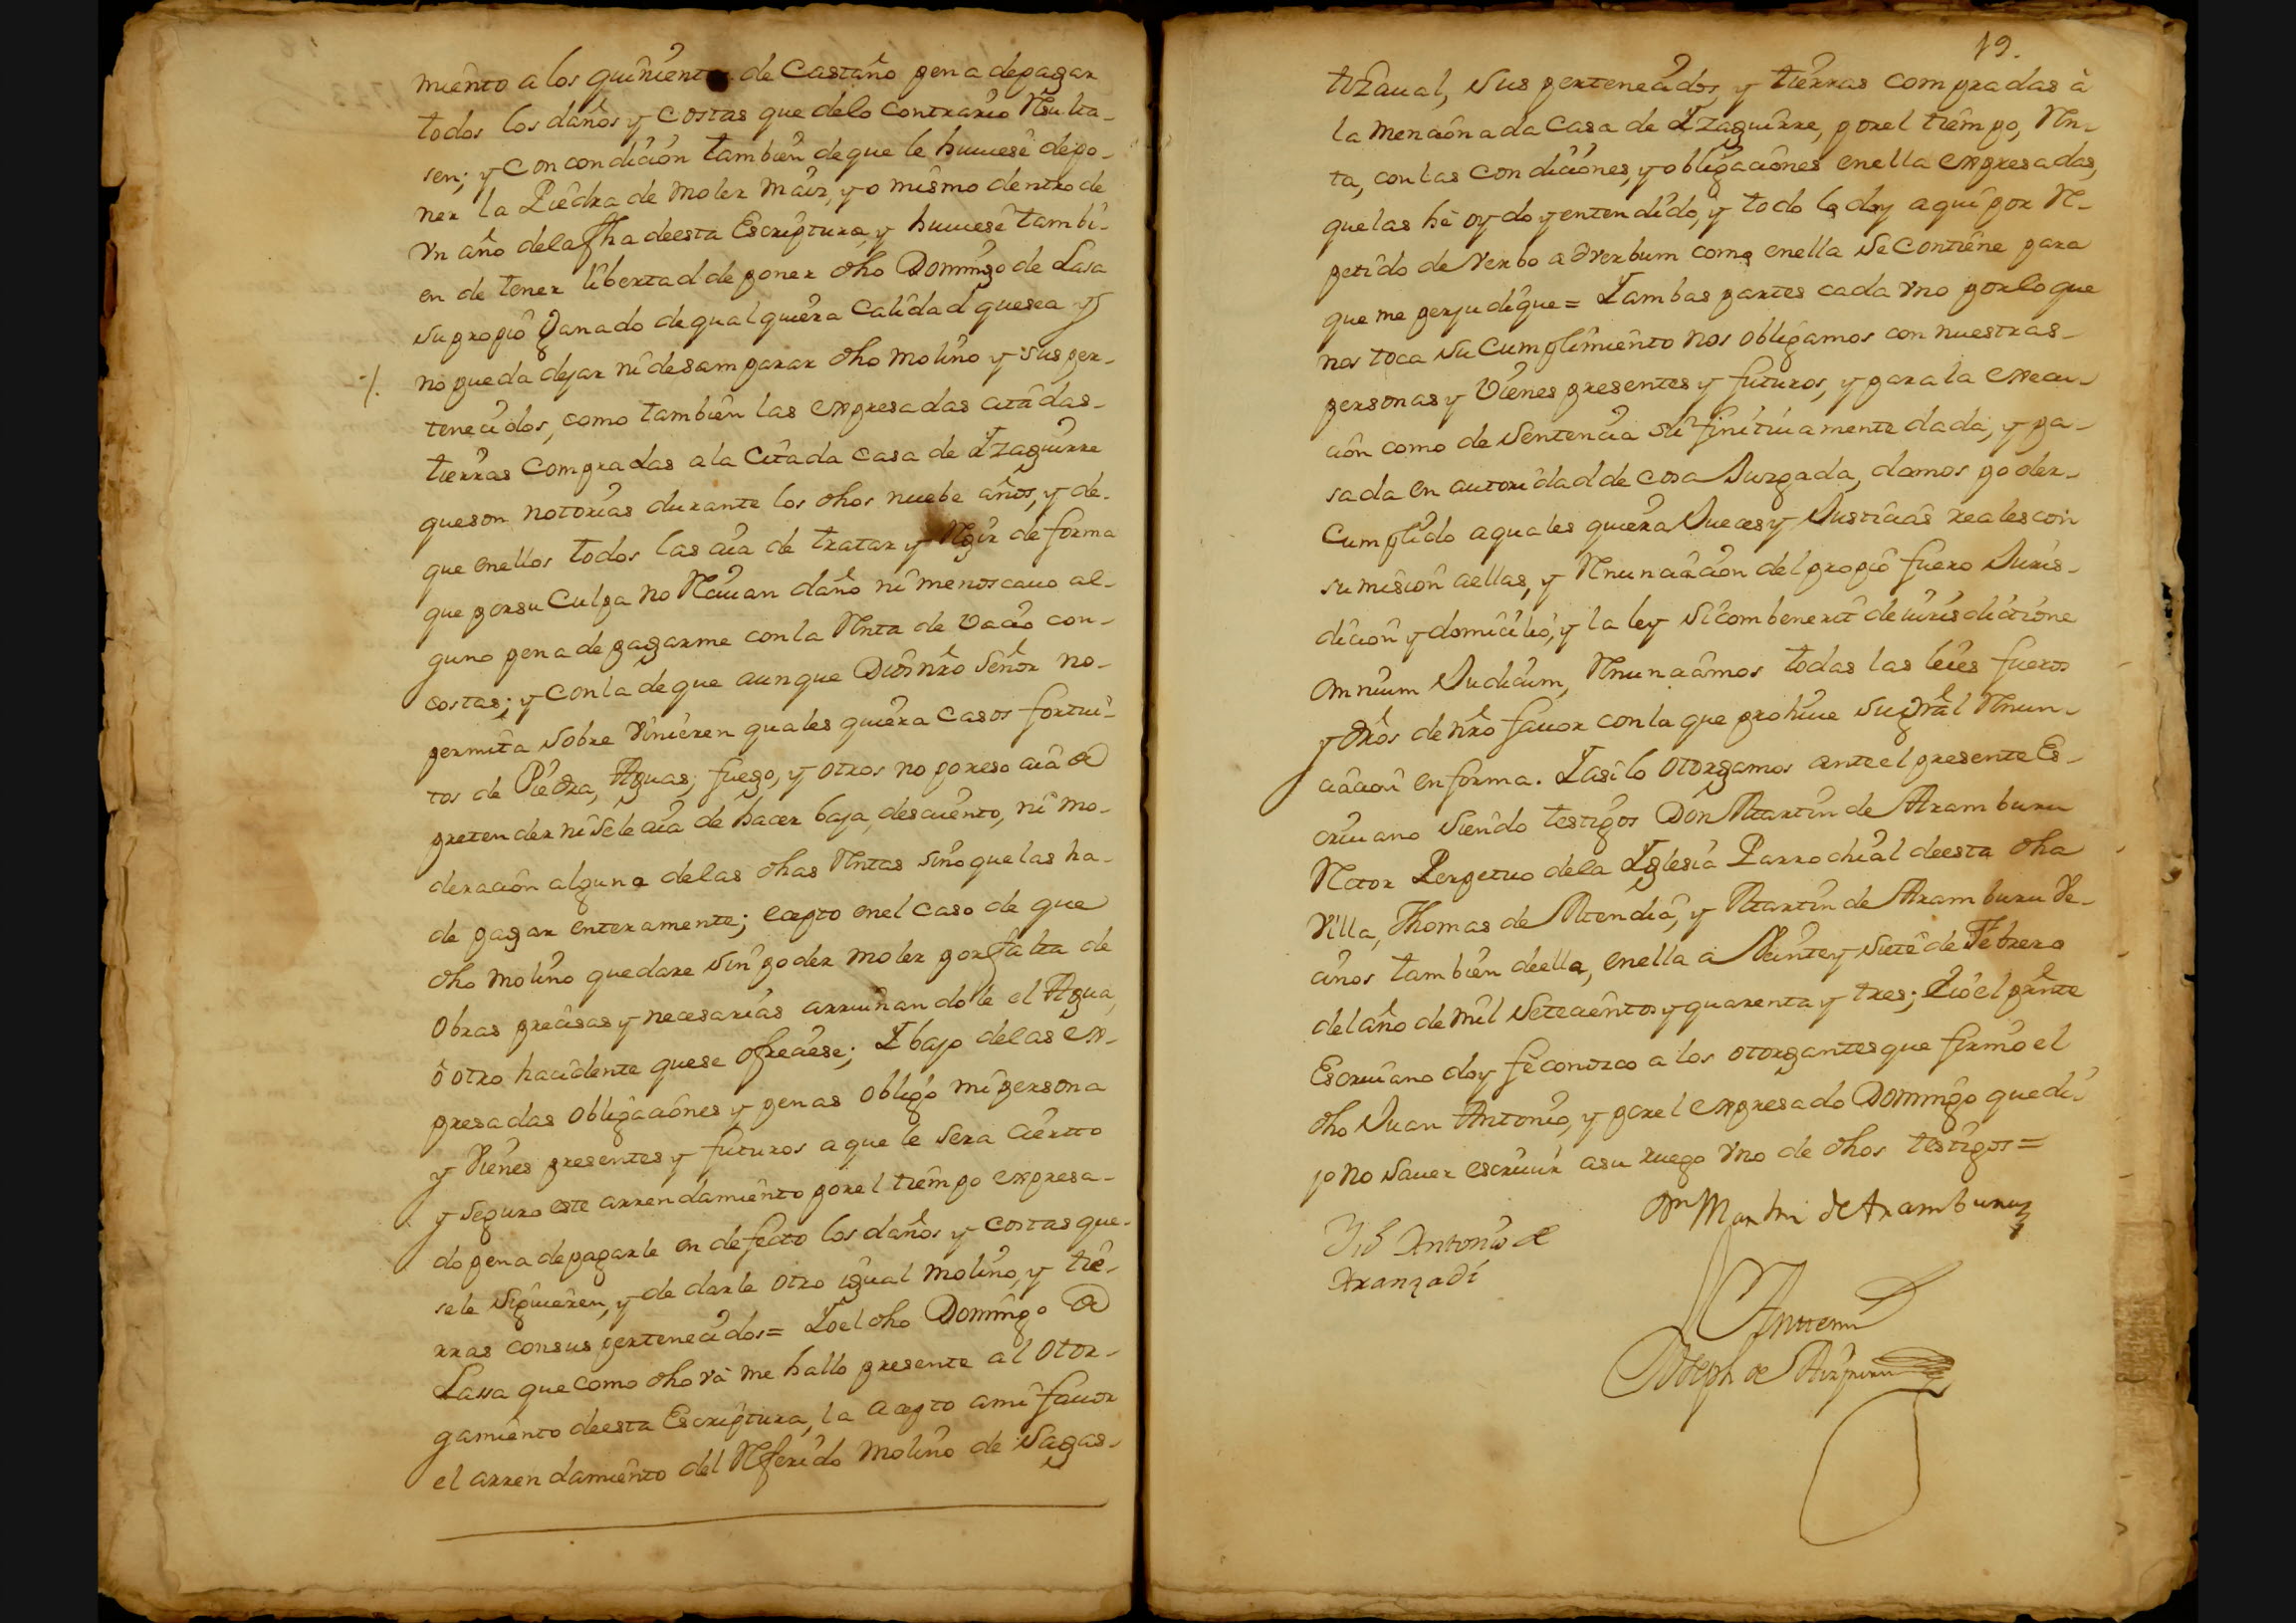 miento a los quinientos de Castaño pena de pagar
todos los daños y costas que de lo contrario Resulta-
sen; y con condicion tambien de que le huuiese de po-
ner la Piedra de moler maiz, yo mismo dentro de
Vn año de la fha de esta Escriptura, y huuiese tambi-
en de tener libertad de poner dho Domingo de Lasa
su propio Ganado de qualquiera calidad que sea y
no pueda dejar ni desamparar dho molino y sus per-
tenecidos, como tambien las expresadas citadas
tierras compradas a la citada casa de Yzaguirre
que son notorias durante los dhos nuebe años, y de-
que en ellos todos las aia de tratar y Regir de forma
que por su culpa no Reciuan daño ni menoscauo al-
guno pena de pagarme con la Renta de Vacio con-
costas; y con la de que aunque Dios nro Señor no-
permita sobre Vinieren quales quiera casos fortui-
tos de Piedra, Aguas, fuego, y otros no por eso aia de
pretender ni se le aia de hacer baja, descuento, ni mo-
deracion alguna de las dhas Rentas sino que las ha-
de pagar enteramente; cepto en el caso de que
dho molino quedare sin poder moler por falta de
obras precisas y necesarias arruinandole el Agua,
ò otro hacidente que se ofreciese; Y bajo de las ex-
presadas obligaciones y penas obligo mi persona
y Vienes presentes y futuros a que le sera cierto
y seguro este arrendamiento por el tiempo expresa-
do pena de pagarle en defecto los daños y costas que-
se le siguieren, y de darle otro igual molino, y tie-
rras con sus pertenecidos= Yo el dho Domingo de
Lassa que como dho và me hallo presente al otor-
gamiento de esta Escriptura, la acepto a mi fauor
el arrendamiento del Referido molino de Sagas-
19.
tizaual, sus pertenecidos, y tierras compradas à
la mencionada casa de Yzaguirre, por el tiempo, Ren-
ta, con las condiciones, y obligaciones en ella expresadas,
que las hè oydo y entendido, y todo lo doy aqui por Re-
petido de Verbo ad Verbum como en ella se contiene para
que me perjudique= Y ambas partes cada Vno por lo que
nos toca su cumplimiento nos obligamos con nuestras-
personas y Vienes presentes y futuros, y para la execu-
cion como de sentencia difinitiuamente dada, y pa-
sada en autoridad de cosa Juzgada, damos poder-
cumplido a quales quiera Jueces y Justicias reales con
sumision a ellas, y Renunciacion del propio fuero Juris-
dicion y domicilio, y la ley si combenerit de iurisdictione
omnium Judicum, Renunciamos todas las leies fueros
y dros de nro fauor con la que prohiue su gral Renun-
ciacion en forma. Y asi lo otorgamos ante el presente Es-
criuano siendo testigos Don Martin de Aramburu
Rector Perpetuo de la Yglesia Parrochial de esta dha
Villa, Thomas de Mendia, y Martin de Aramburu Ve-
cinos tambien de ella, en ella a Veinte y siete de Febrero
del año de mil setecientos y quarenta y tres; Yo el prnte
Escriuano doy fè conozco a los otorgantes que firmò el
dho Juan Antonio, y por el expresado Domingo que di-
jo no sauer escriuir a su ruego Vno de dhos testigos=
Dn Martin de Aramburu
Antonio de
Aranzadi
Ante mi
Joseph de